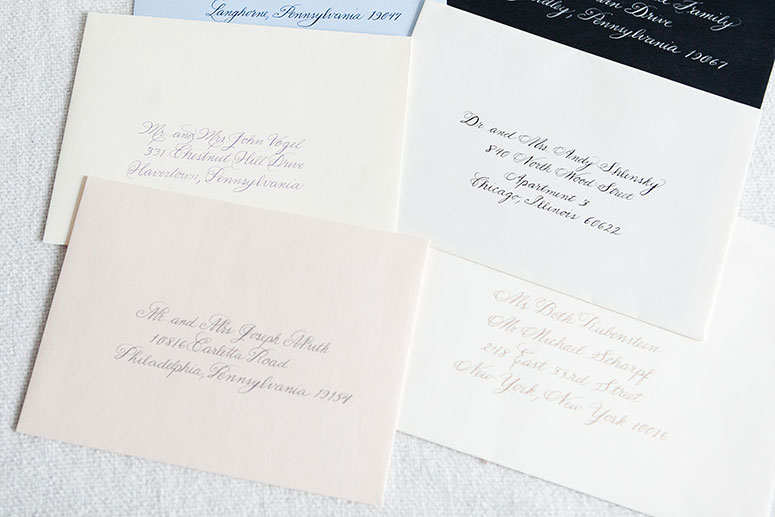 Langhorne, Pennsylvania 19047
Family
Drive
Pennsylvania 19067
Mr. and Mrs John Vogel
331 Chestnut Hill Drive
Havertown, Pennsylvania
Dr. and Mrs. Andy Shlensky
840 North Wood Street
Apartment 3
Chicago, Illinois 60622
Mr. and Mrs Joseph
10816 Carlitta Road
Philadelphia, Pennsylvania 19154
Ms. Beth Rubenstein
Mr. Michael Scharpf
248 East 33rd Street
New York, New York 10016